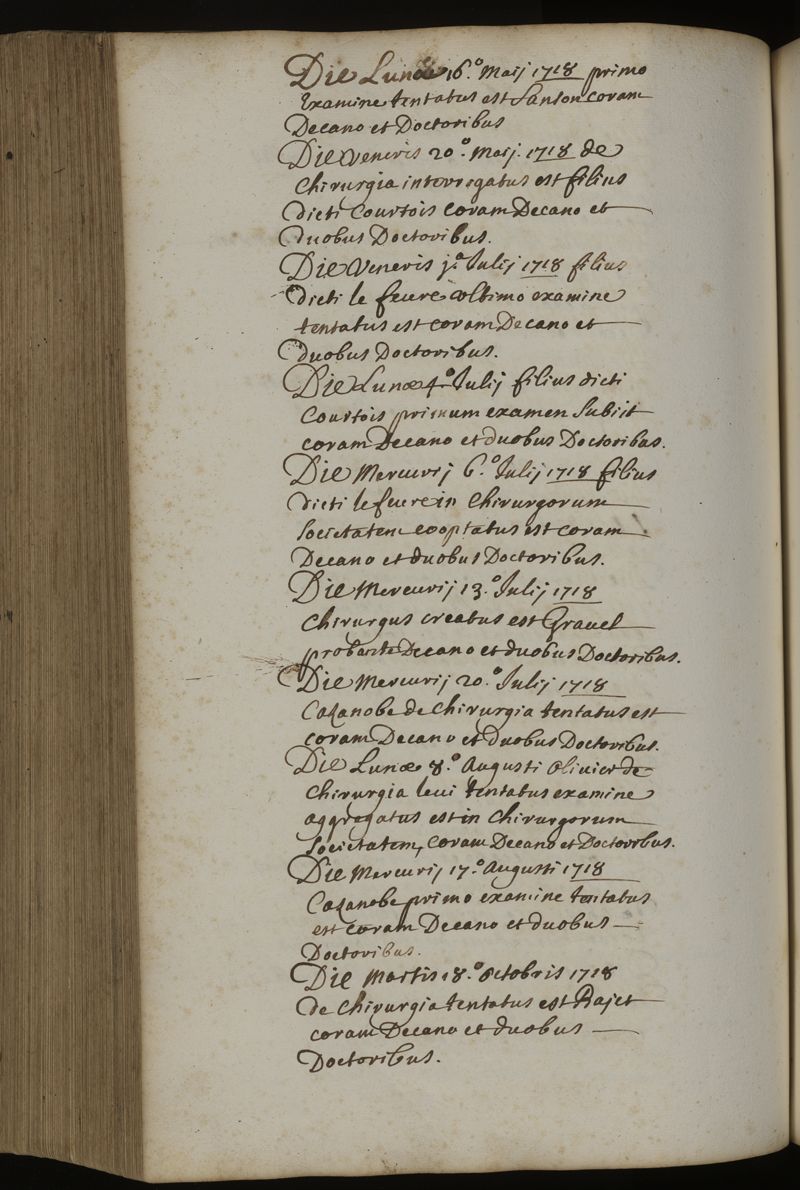 Die Lunæ 16.º Maij 1718 primo
Examine tentatus est Sanson coram
Decano et Doctoribus
Die veneris 20.º Maij. 1718 de
Chirurgia interrogatus est filius
dicti Courtois coram Decano et
duobus Doctoribus.
Die Veneris j.ª Julij 1718 filius
dicti le feure ultimo examine
tentatus est coram Decano et
duobus Doctoribus.
Die Lunæ 4.º Julij filius dicti
Courtois primum examen Subiit
coram Decano et duobus Doctoribus.
Die Mercurij 6.º Julij 1718 filius
dicti le feure in Chirurgorum
Societatem cooptatus est coram
Decano et duobus Doctoribus.
Die Mercurij 13.º Julij 1718
Chirurgus creatus est Grauel
probante Decano et duobus Doctoribus.
Die Mercurij 20.º Julij 1718
Cazanobe de Chirurgia tentatus est
coram Decano et duobus Doctoribus.
Die Lunæ 8.º Augusti Oliuier de
Chirurgia leui tentatus examine
aggregatus est in Chirurgorum
Societatem, coram Decano et Doctoribus.
Die Mercurij 17.º Augusti 1718
Cazanobe primo examine tentatus
est coram Decano et duobus
Doctoribus.
Die Martis 18.º Octobris 1718
de Chirurgia tentatus est Rajet
coram Decano et duobus
Doctoribus.